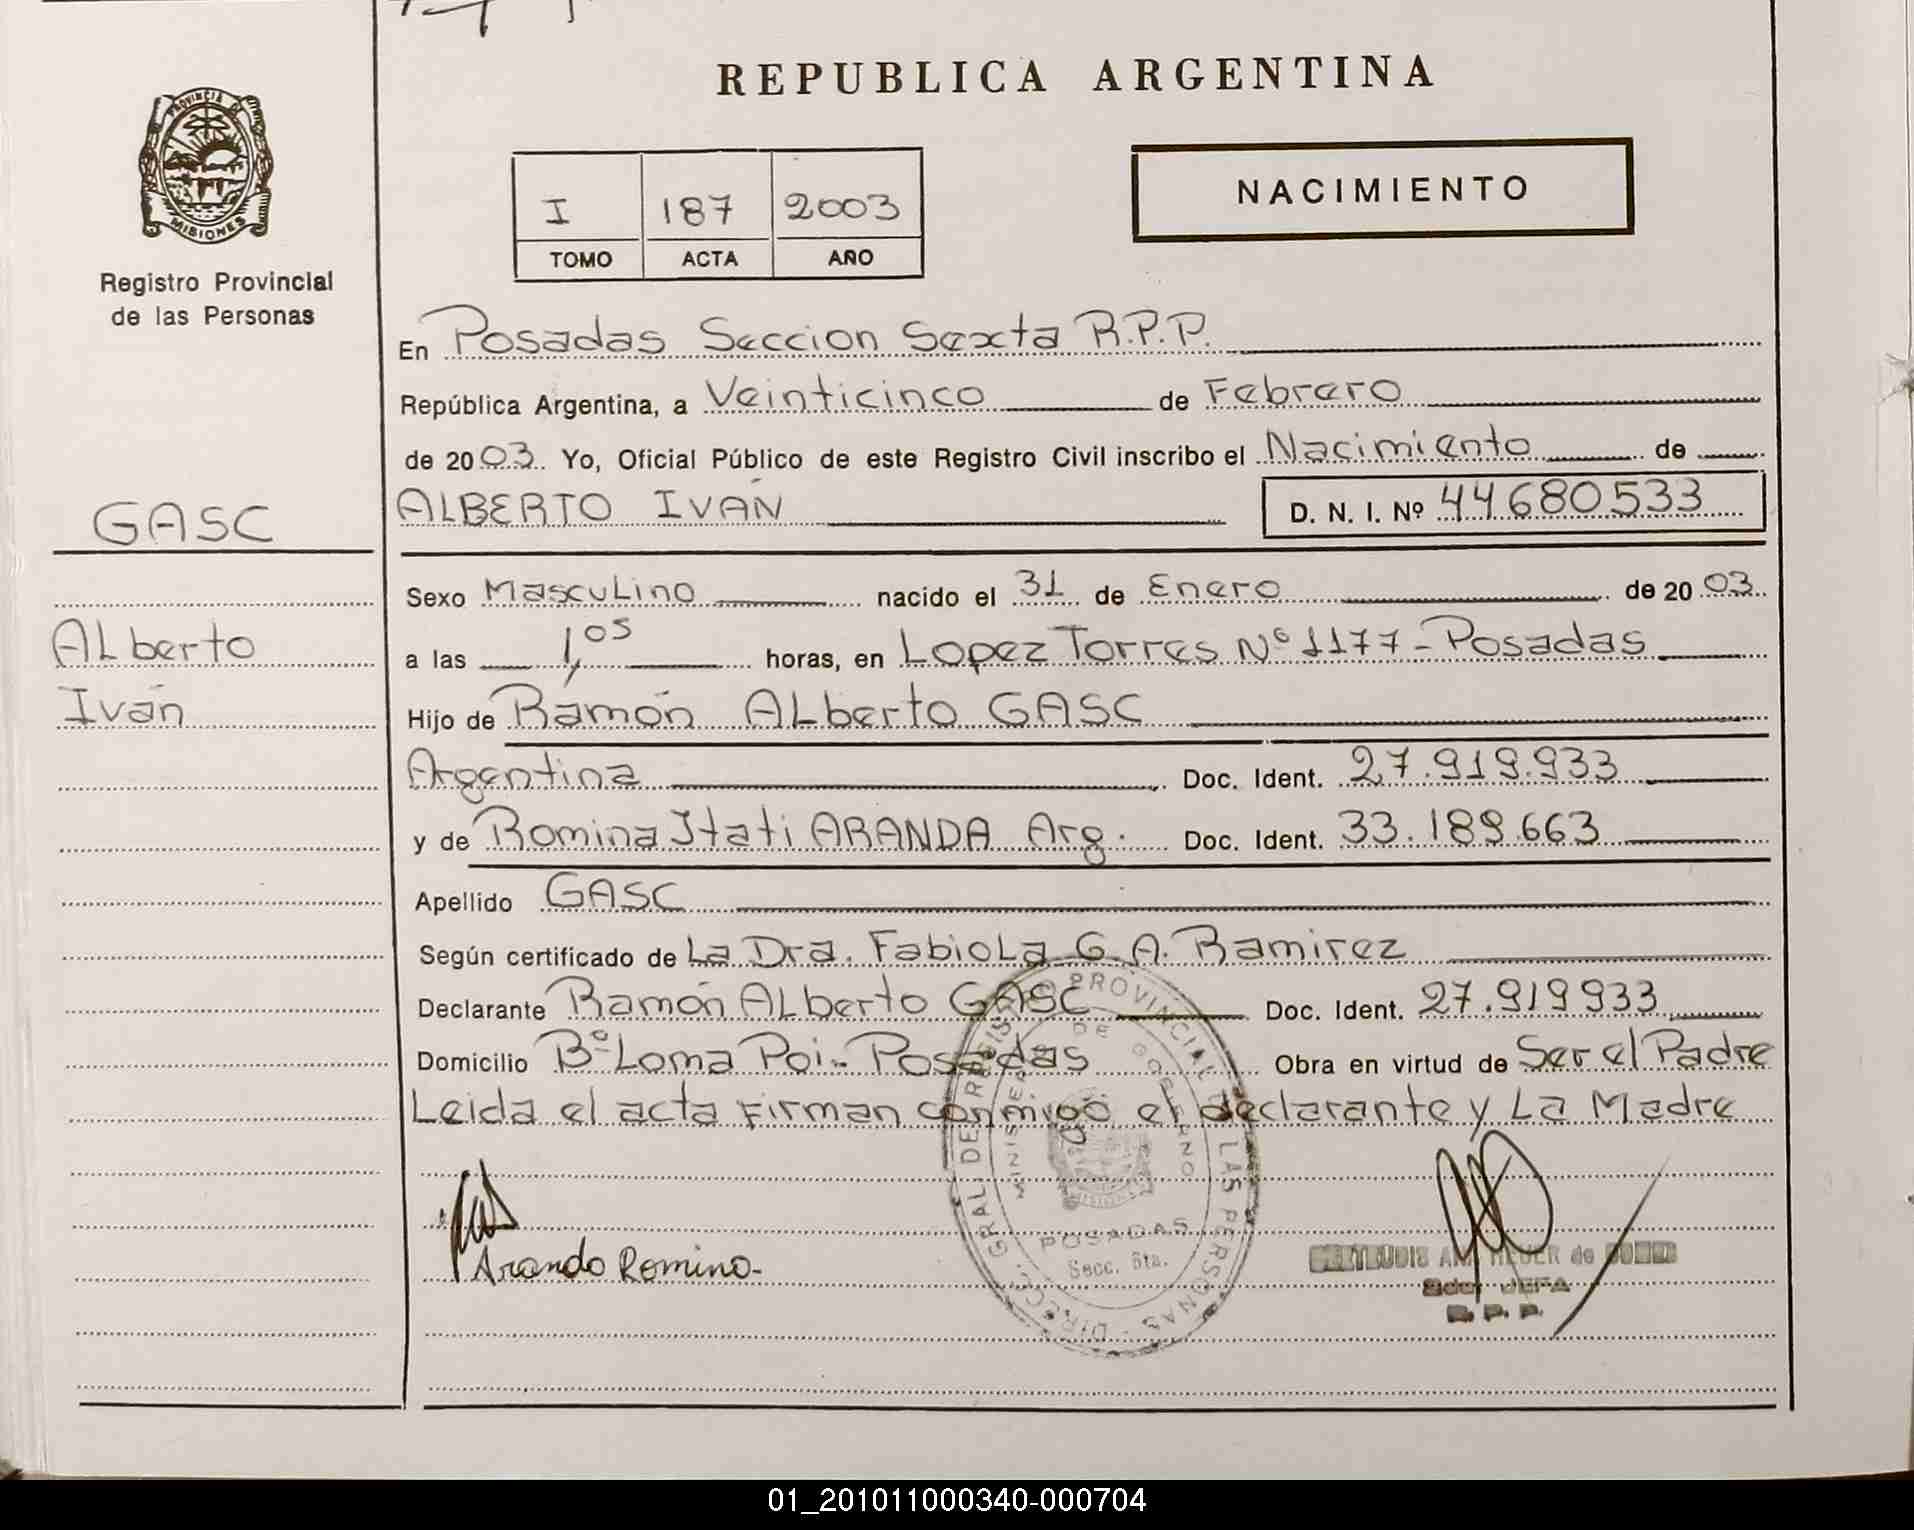 REPUBLICA ARGENTINA
PROVINCIA DE
MISIONES
Registro Provincial
de las Personas
I 187 2003
TOMO ACTA AÑO
NACIMIENTO
En Posadas Seccion Sexta R.P.P.
República Argentina, a Veinticinco de Febrero
de 2003. Yo, Oficial Público de este Registro Civil inscribo el Nacimiento de
GASC
ALBERTO IVÁN D. N. I. Nº 44680533
Sexo Masculino nacido el 31 de Enero de 2003
Alberto
Iván
a las 1,05 horas, en Lopez Torres Nº 1177 - Posadas
Hijo de Ramón Alberto GASC
Argentina Doc. Ident. 27.919.933
y de Romina Itati ARANDA Arg. Doc. Ident. 33.189.663
Apellido GASC
Según certificado de La Dra. Fabiola G A. Ramirez
Declarante Ramón Alberto GASC Doc. Ident. 27.919933
Domicilio Bº Loma Poi - Posadas Obra en virtud de Ser el Padre
Leida el acta firman conmigo el declarante y La Madre
DIRECC. GRAL. DE REGISTRO PROVINCIAL DE LAS PERSONAS
MINISTERIO DE GOBIERNO
POSADAS
Secc. 6ta.
Aranda Romina
JEFA
R. P. P.
01_201011000340-000704